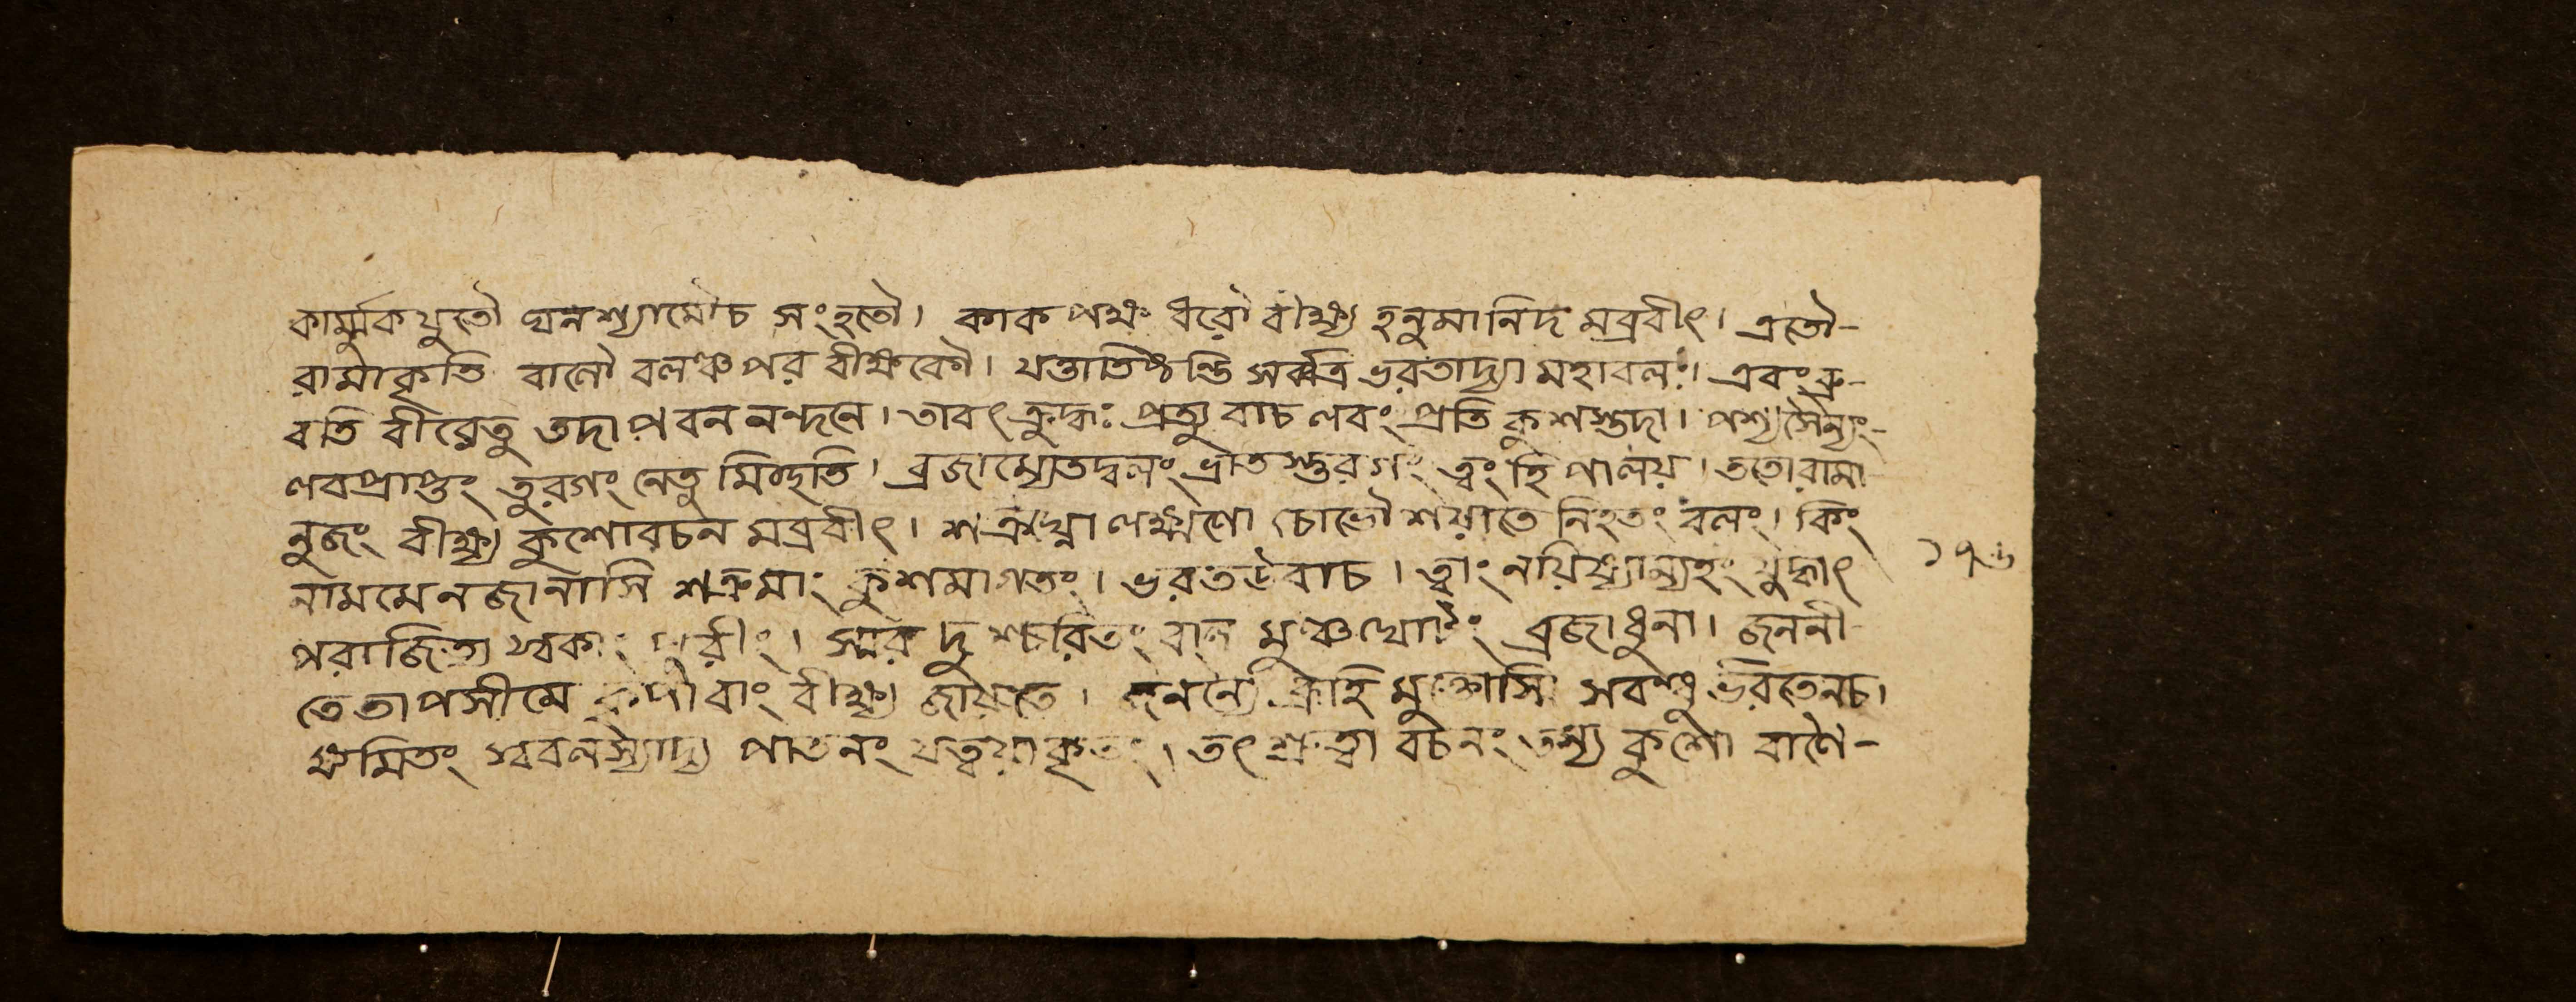 কার্ম্মুকযুতৌ ঘনশ্যামৌচ সংহতৌ। কাকপক্ষ ধরৌ বীক্ষ্য হনুমানিদ মব্রবীৎ। এতৌ-
রামাকৃতি বালৌ বলঞ্চপর বীক্ষকৌ। যত্তাতিষ্ঠন্তি সর্ব্বত্র ভরতাদ্যা মহাবলাঃ। এবংব্রু-
বতি বীরেতু তদাপবননন্দনে। তাবৎ ক্রুদ্ধঃ প্রত্যুবাচ লবং প্রতি কুশস্তদা। পশ্যসৈন্যং-
লবপ্রাপ্তং তুরগং নেতুমিচ্ছতি। ব্রজাম্যেতদ্বলংভ্রাতস্তুরগং ত্বংহি পালয়। ততোরামা
নুজং বীক্ষ্য কুশোবচন মব্রবীৎ। শত্রুঘ্নো লক্ষ্মণো চোভৌ শয়াতে নিহতং বলং। কিং
নামমেনজানাসি শত্রুমাং কুশমাগতং। ভরতউবাচ। ত্বাংনয়িষ্যাম্যহং যুদ্ধাৎ
পরাজিত্য স্বকাং পুরীং। স্মর দুশ্চরিতং বাল মুঞ্চ ব্রজাধুনা। জননী
তেতাপসীমে কৃপা বাং বীক্ষ্য জায়তে। জনন্যৈ ব্রূহি মুক্তোসি সবন্ধু ভরতেনচ।
ক্ষমিতং স্ববলস্যাদ্য পাতনং যত্ত্বয়াকৃতং। তৎশ্রুত্বা বচনং তস্য কুশো বাণৈ-
১৭৬